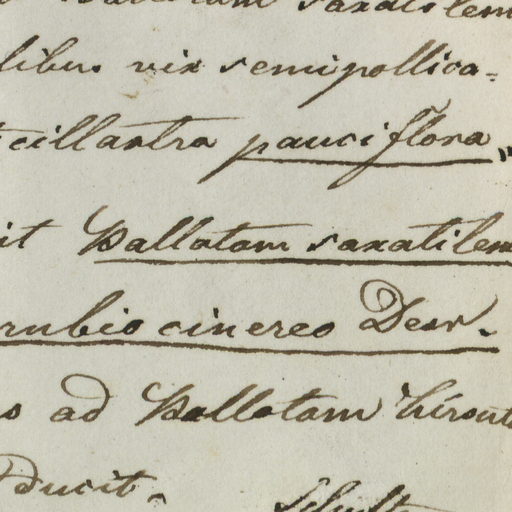 saxatilem
libus vix semipollica=
cillastra pauciflora,
it Ballotam saxatilem
rubio cinereo Desr.
ad Ballotam hirsut
ducit.